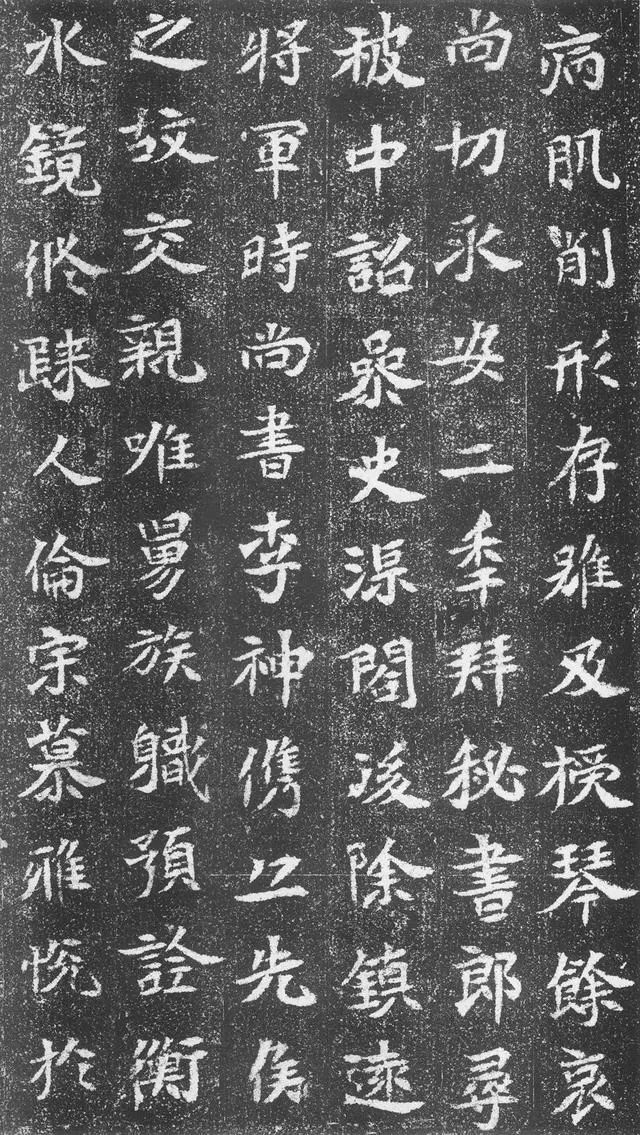 病肌削形存雖及援琴餘哀
尚切永安二年拜秘書郎尋
被中詔叅史渠閣後除鎮遠
將軍時尚書李神儁以先侯
之故交親唯舅族職預詮衡
水鏡攸歸人倫宗慕雅悅於